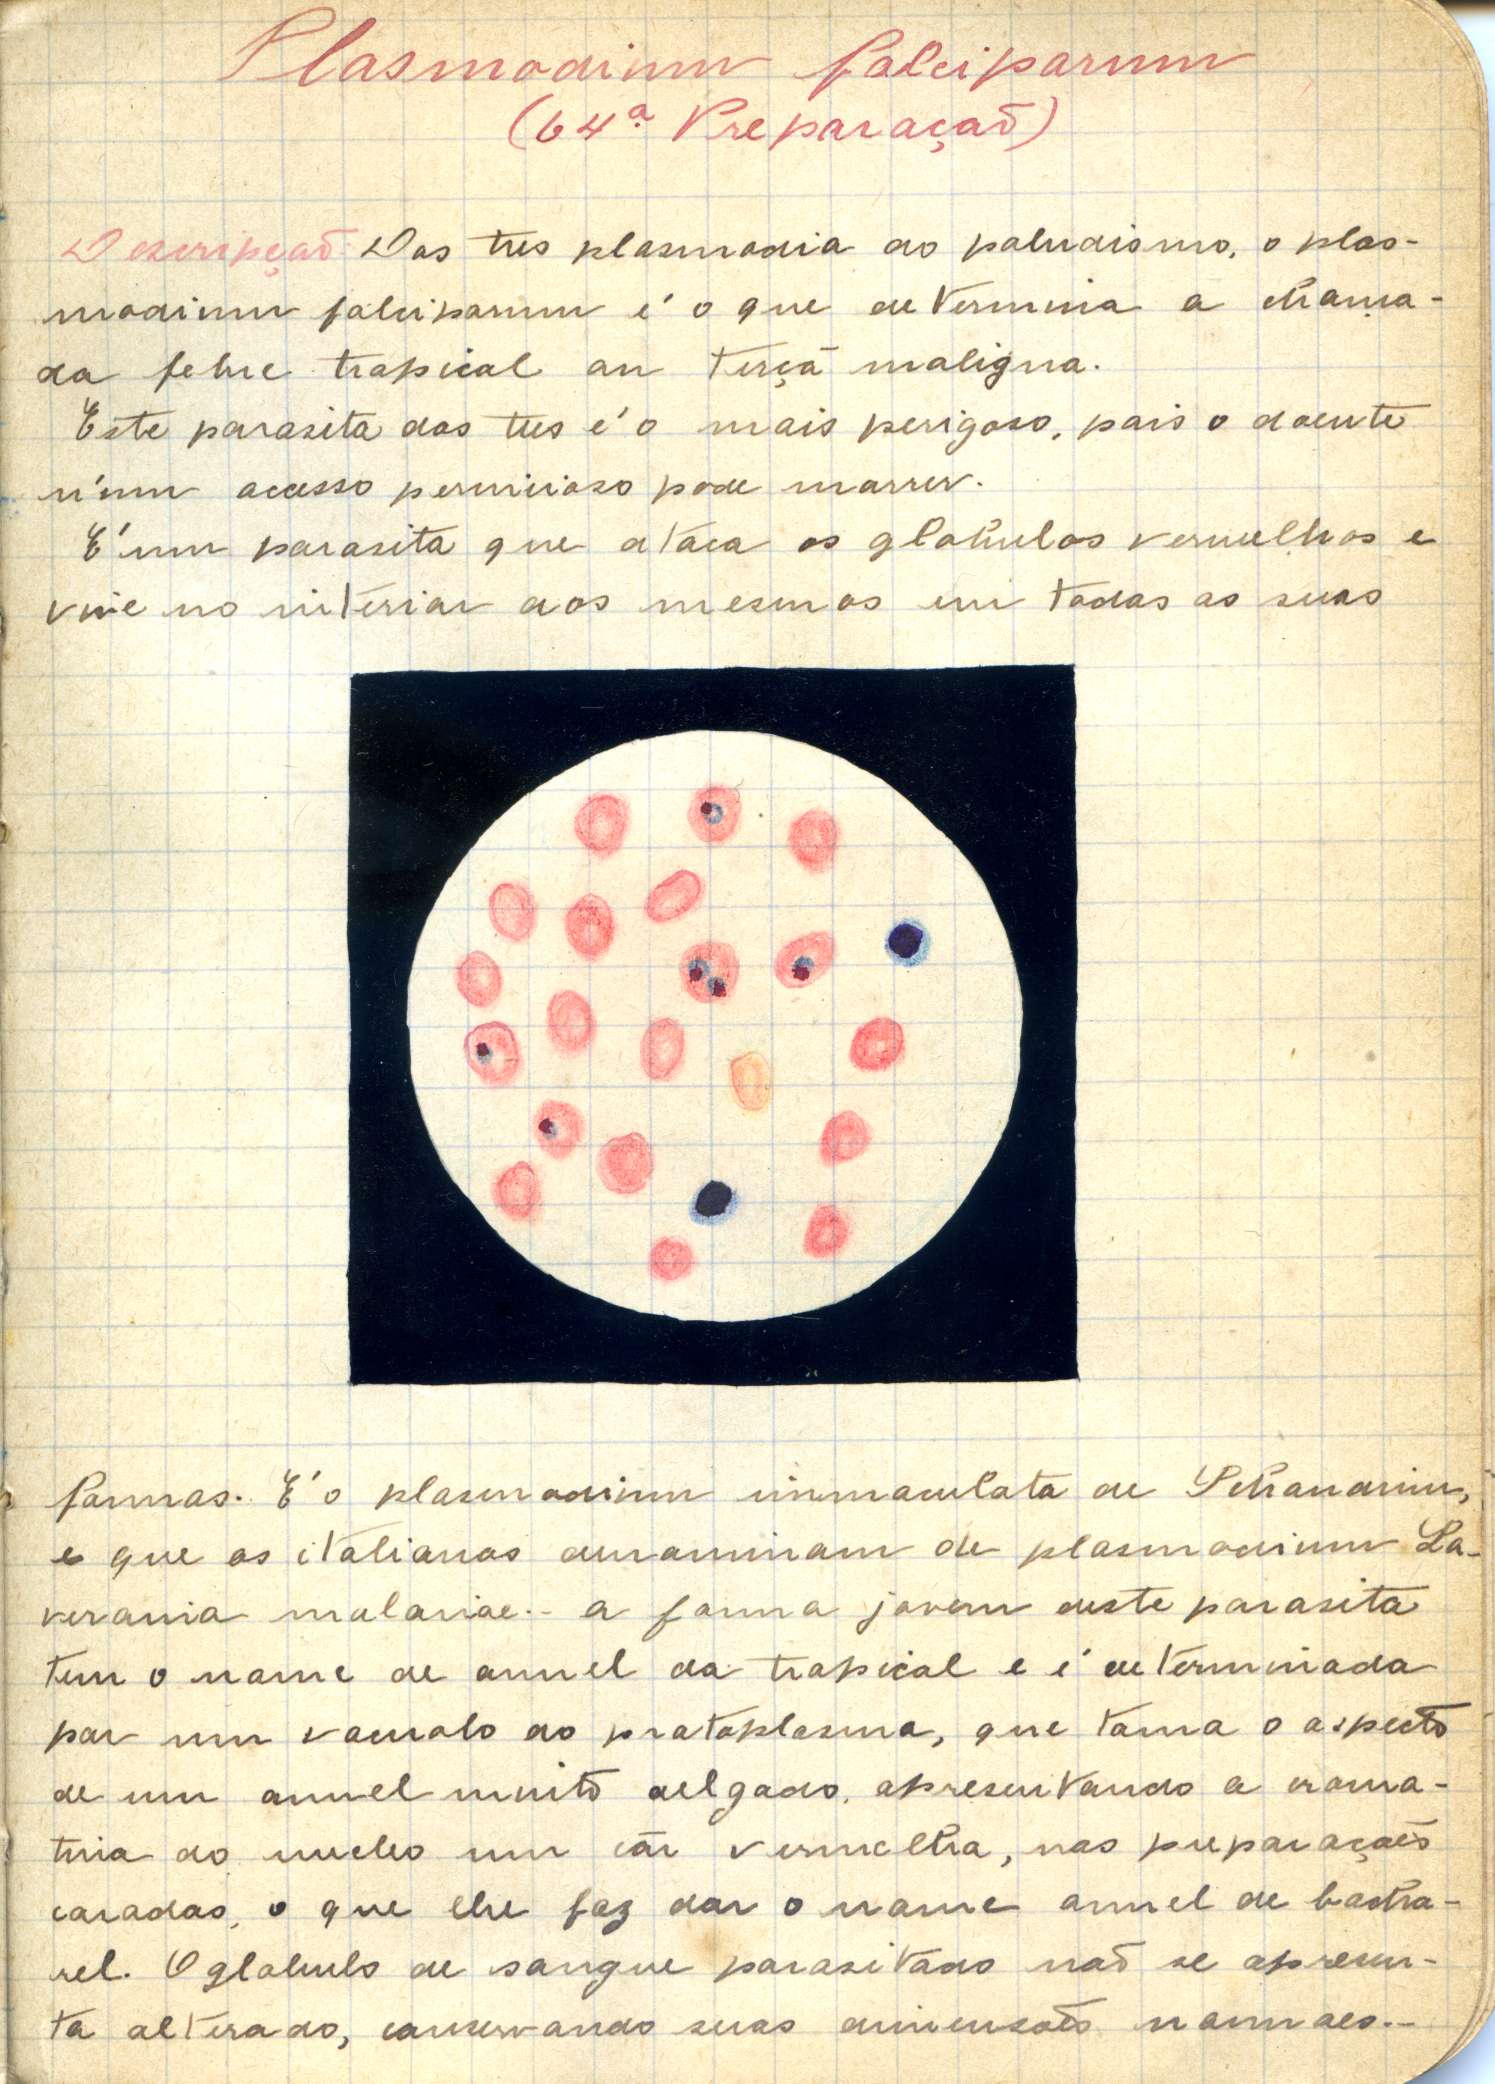 Plasmodium falciparum
(64ª Preparaçaõ)
Descripçaõ Dos tres plasmodia do paludismo, o plas-
modium falciparum é o que determina a chama-
da febre tropical ou terçã maligna.
Este parasita dos tres é o mais perigoso, pois o doente
n'um acesso pernicioso pode morrer.
É um parasita que ataca os globulos vermelhos e
vive no interior dos mesmos em todas as suas
formas. É o plasmodium immaculata de Schaudinn,
e que os italianos denominam de plasmodium La-
verania malariae.- a forma jovem deste parasita
tem o nome de annel da tropical e é determinada
por um vacuolo do protoplasma, que toma o aspecto
de um annel muito delgado, apresentando a croma-
tina do nucleo um côr vermelha, nas preparaçoẽs
coradas, o que lhe faz dar o nome annel de
O globulo de sangue parasitado naõ se apresen-
ta alterado, conservando suas dimensoẽs normaes.-